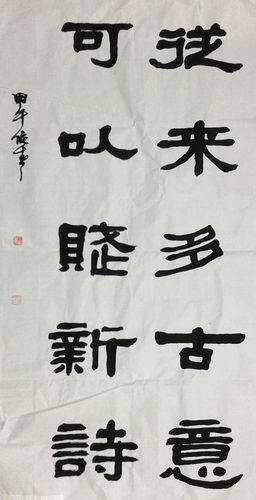 從来多古意
可以賦新詩
甲午